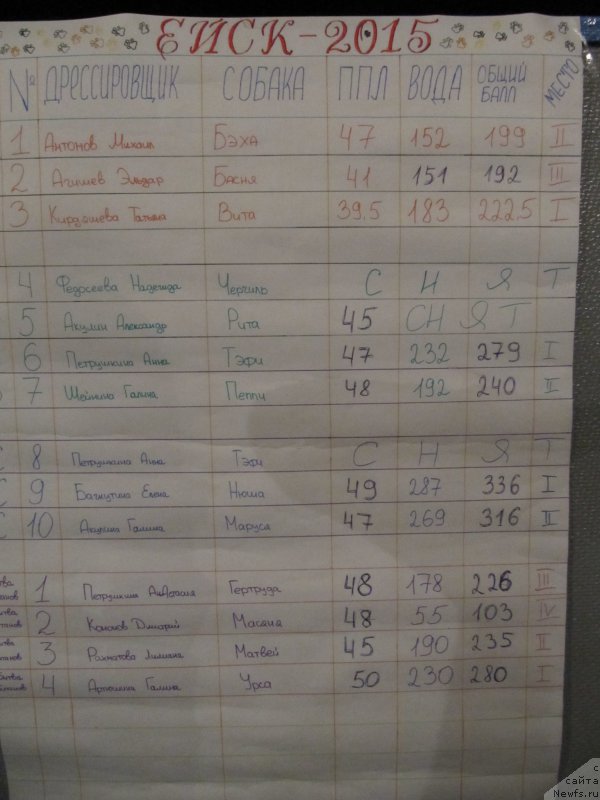 ЕЙСК-2015
№ ДРЕССИРОВЩИК СОБАКА ППЛ ВОДА ОБЩИЙ БАЛЛ МЕСТО
1 Антонов Михаил Бэха 47 152 199 II
2 Агишев Эльдар Басня 41 151 192 III
3 Кирдяшева Татьяна Вита 39.5 183 222.5 I
4 Федосеева Надежда Черчиль С Н Я Т
5 Акулин Александр Рита 45 СН Я Т
6 Петрушкина Анна Тэфи 47 232 279 I
7 Шейнина Галина Пеппи 48 192 240 II
8 Петрушкина Анна Тэфи С Н Я Т
9 Багмутина Елена Нюша 49 287 336 I
10 Акулина Галина Маруся 47 269 316 II
1 Петрушкина Гертруда 48 178 226 III
2 Дмитрий Масяня 48 55 103 IV
3 Рахматова Лилиана Матвей 45 190 235 II
4 Артюшина Галина Урса 50 230 280 I
с
сайта
Newfs.ru